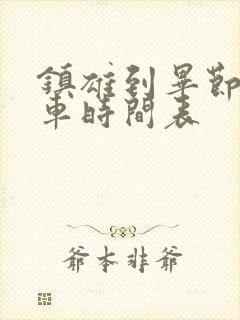 鎮雄到畢節
車時間表
爺本非爺